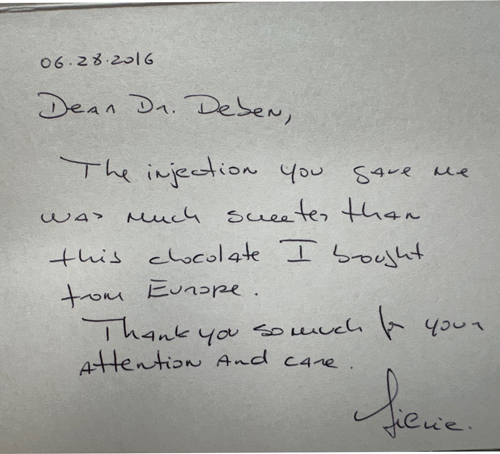 06.28.2016
Dear Dr. Deben,
The injection you gave me
was much sweeter than
this chocolate I bought
from Europe.
Thank you so much for your
attention and care.